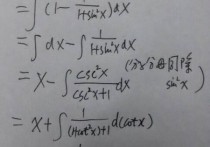 =∫(1-1/(1+sin²x))dx
=∫dx-∫1/(1+sin²x)dx
=x-∫csc²x/(csc²x+1)dx (分子分母同除sin²x)
=x+∫1/((1+cot²x)+1)d(cotx)